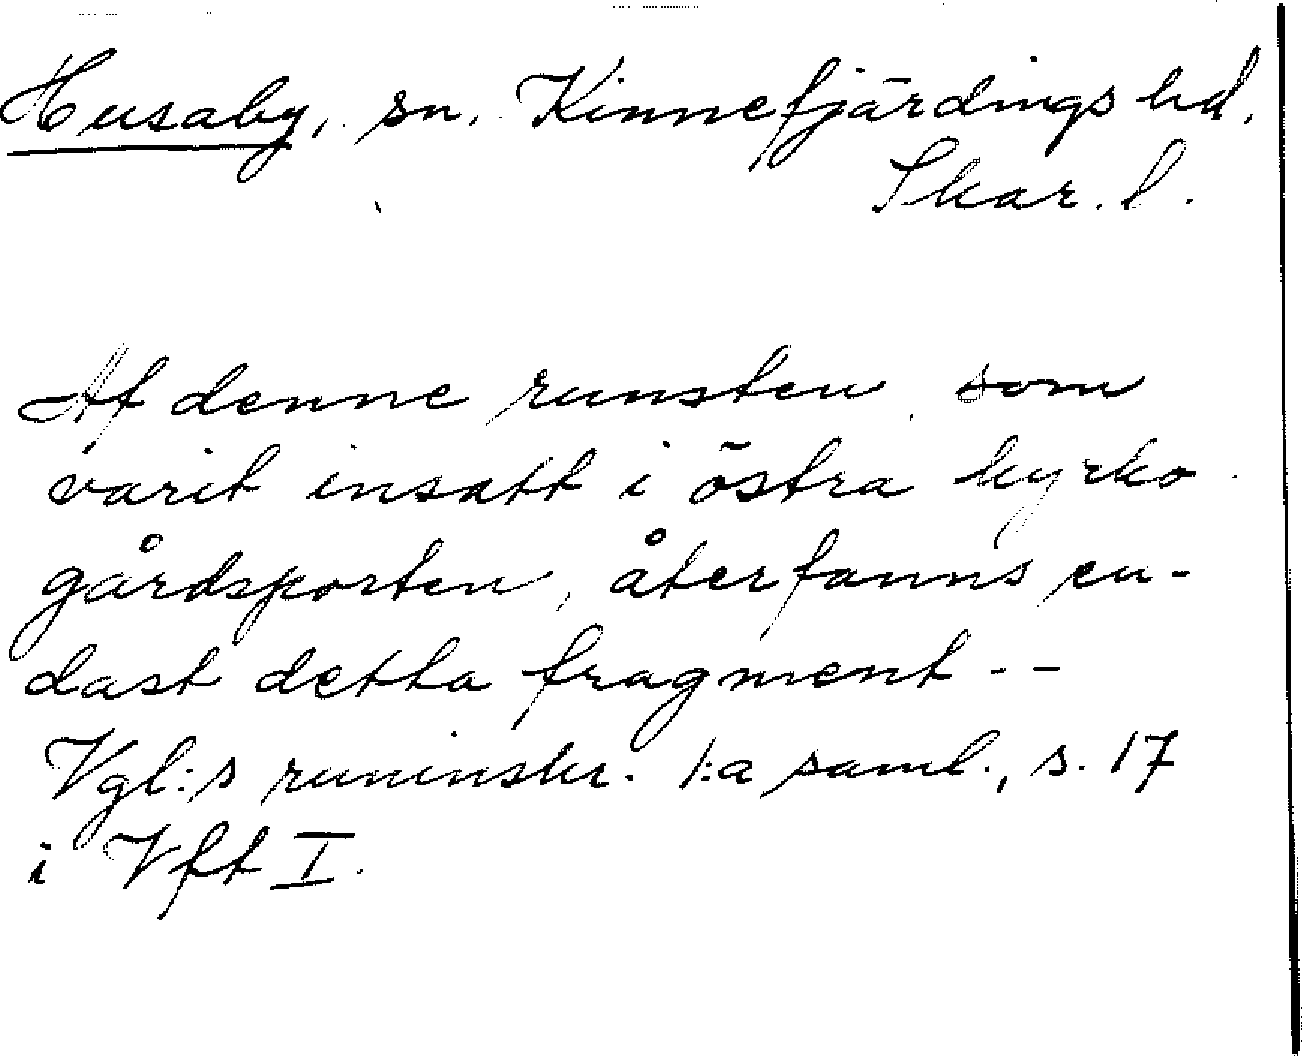 Husaby, sn. Kinnefjärdings hd,
Skar. l.
Af denne runsten som
varit insatt i östra kyrko
gårdsporten, återfanns en-
dast detta fragment --
Vgl:s runinskr. 1:a saml., s. 17
i Vft I.